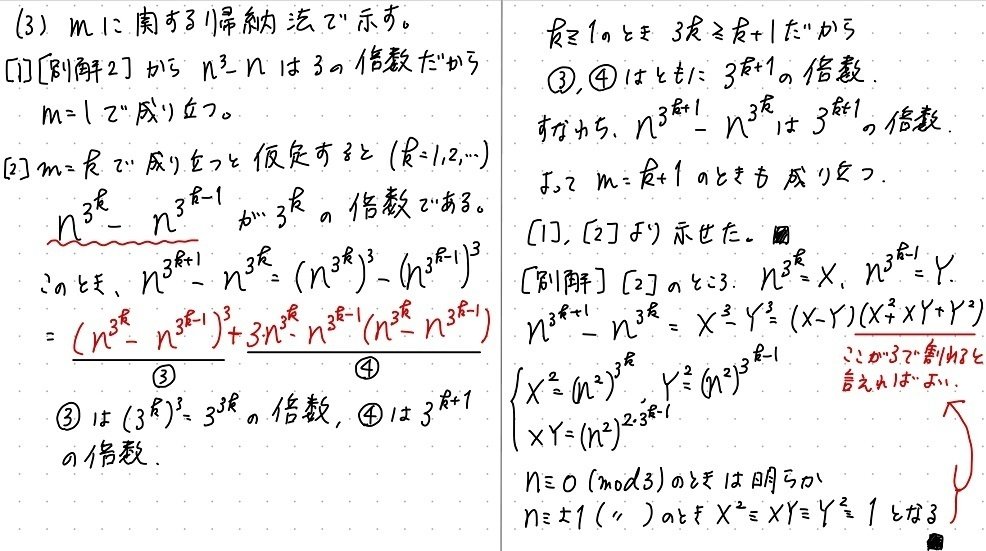 (3) mに関する帰納法で示す。
[1][別解2]から n³-n は3の倍数だから
m=1で成り立つ。
[2] m=kで成り立つと仮定すると (k=1,2,…)
n^{3^k} - n^{3^{k-1}} が 3^k の倍数である。
このとき、n^{3^{k+1}} - n^{3^k} = (n^{3^k})^3 - (n^{3^{k-1}})^3
= (n^{3^k} - n^{3^{k-1}})^3 + 3・n^{3^k}・n^{3^{k-1}}(n^{3^k} - n^{3^{k-1}})
③ ④
③は(3^k)^3=3^{3k}の倍数, ④は3^{k+1}
の倍数.
k≧1のとき 3k≧k+1だから
③,④はともに 3^{k+1}の倍数.
すなわち、n^{3^{k+1}} - n^{3^k}は3^{k+1}の倍数.
よって m=k+1のときも成り立つ.
[1],[2]より示せた。
[別解] [2]のところ. n^{3^k}=X, n^{3^{k-1}}=Y.
n^{3^{k+1}} - n^{3^k} = X^3-Y^3=(X-Y)(X^2+XY+Y^2)
ここが3で割れると
言えればよい.
X^2=(n^2)^{3^k}, Y^2=(n^2)^{3^{k-1}}
XY=(n^2)^{2・3^{k-1}}
n≡0 (mod3)のときは明らか
n≡±1 (〃)のとき X^2≡XY≡Y^2≡1 となる